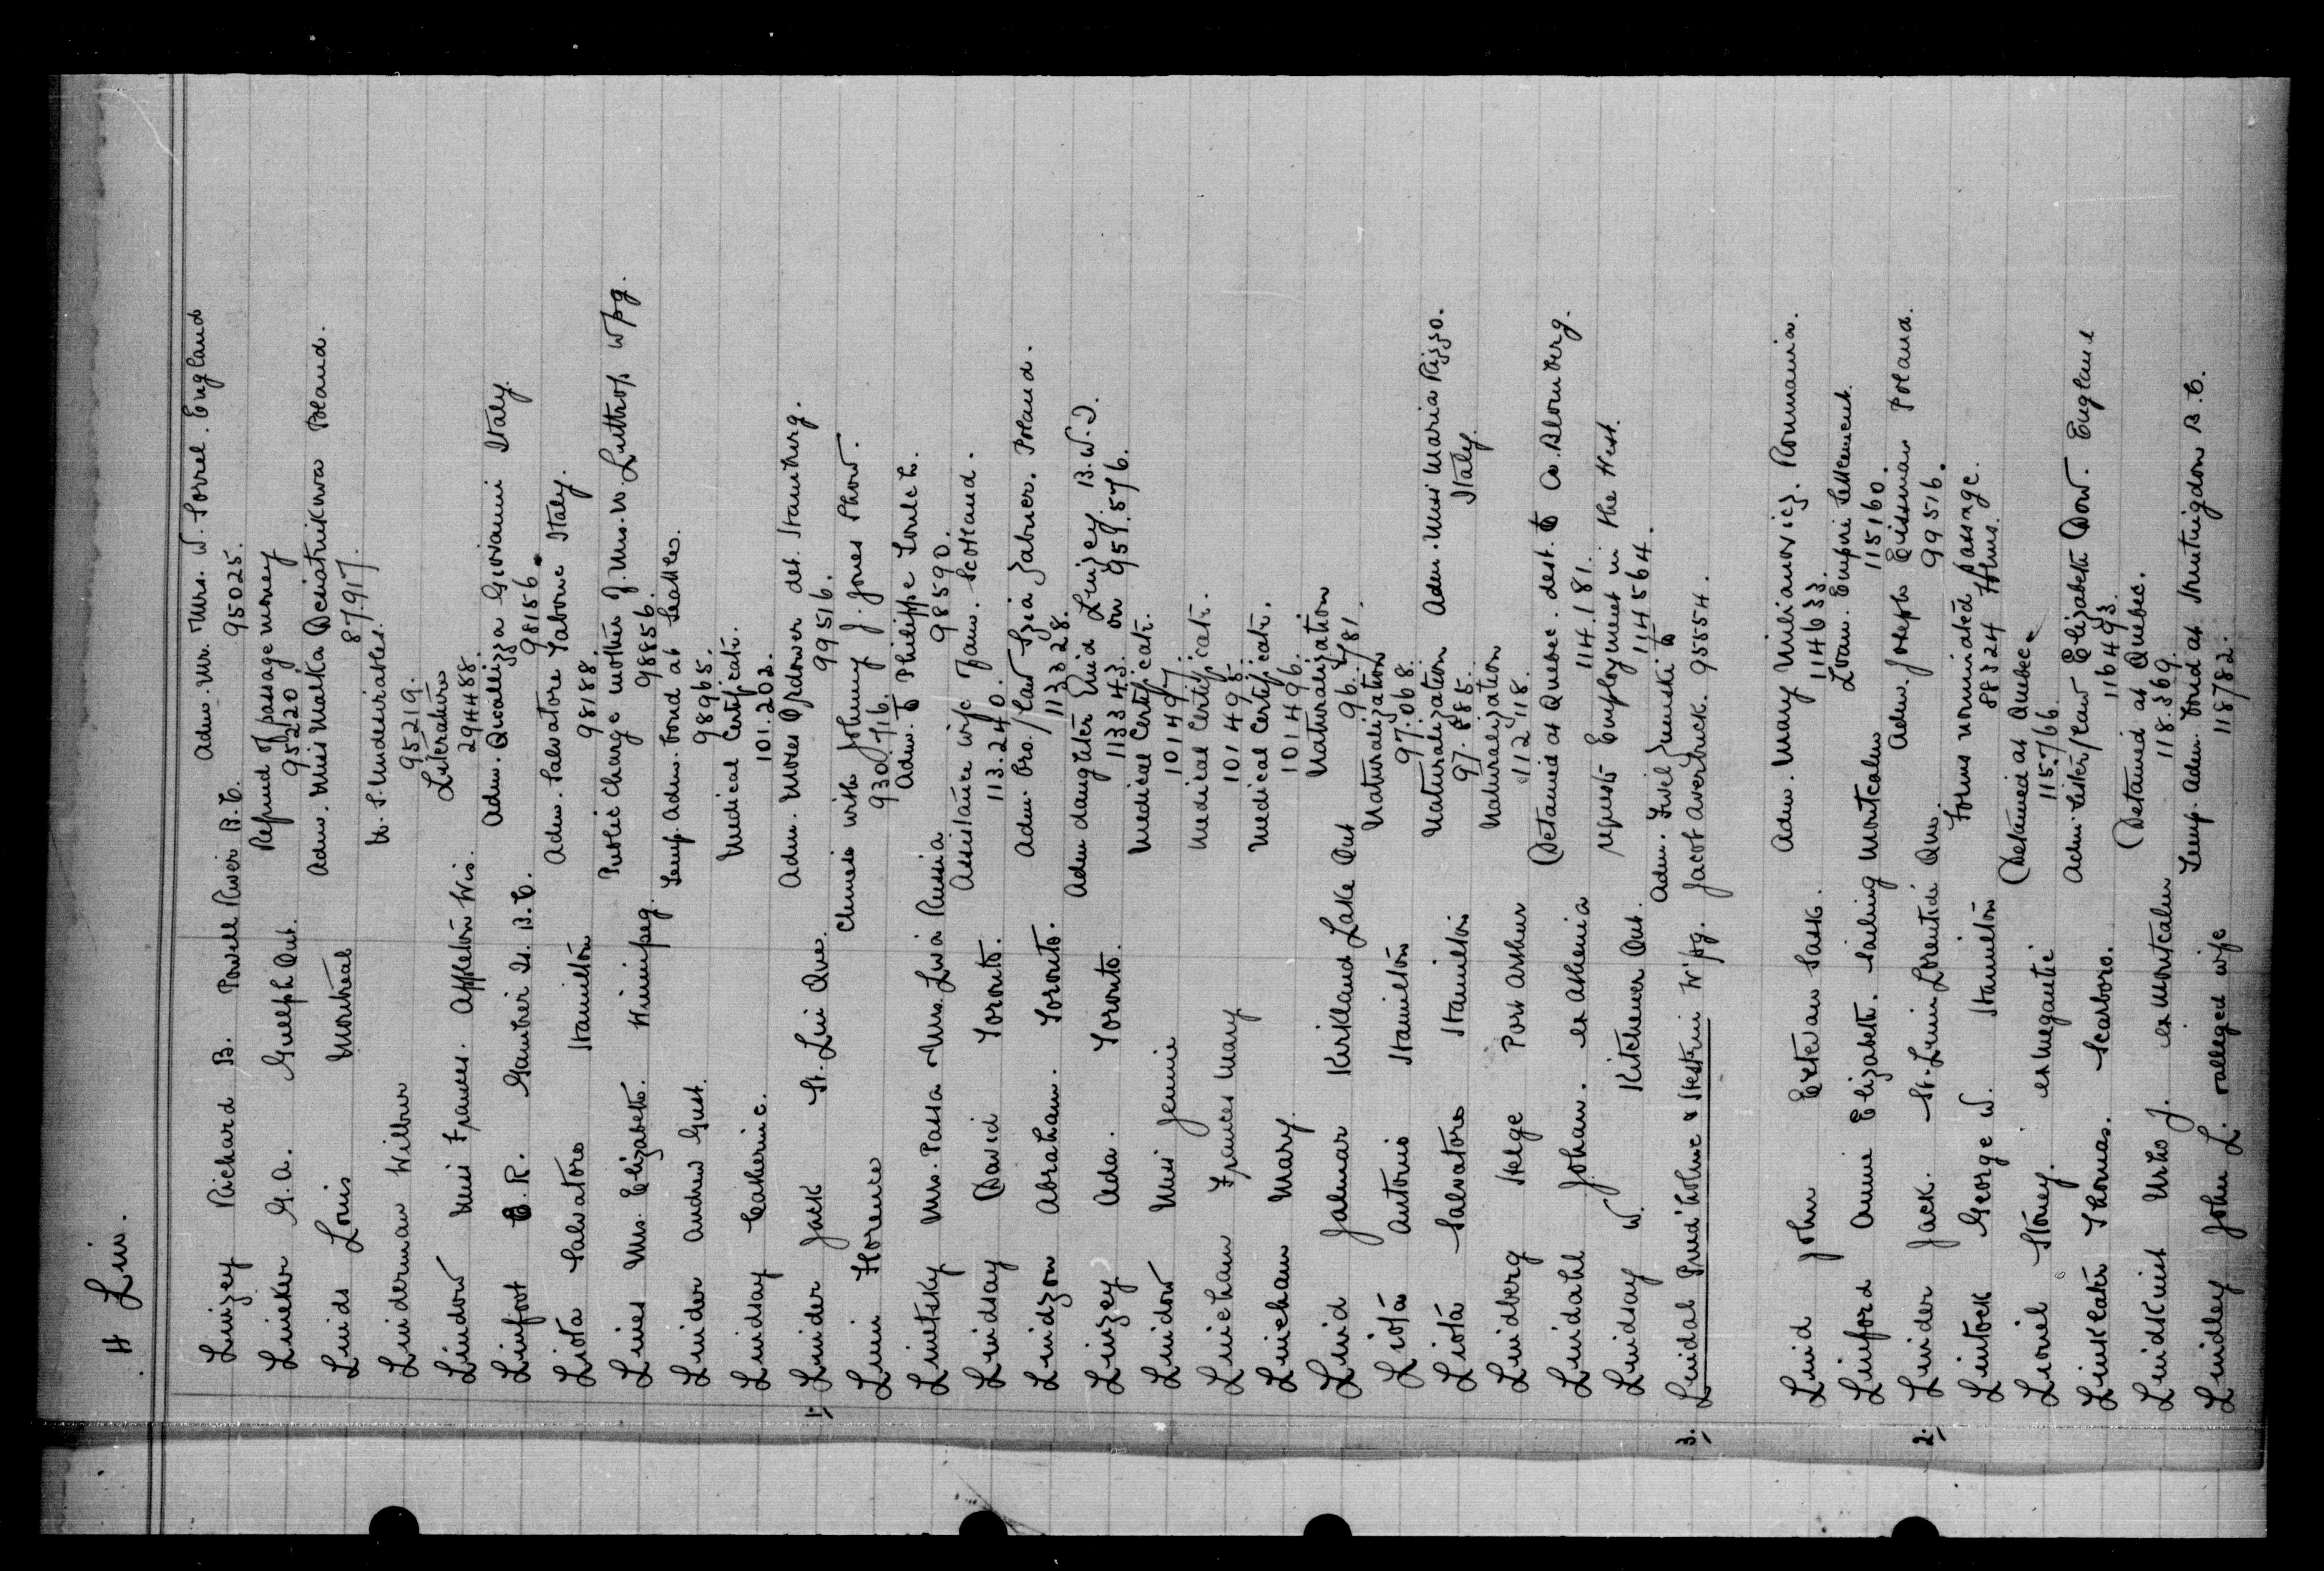 H Lin.
Linzey Richard B. Powell River B.C. Adm. Mr. & Mrs. W. Sorrel. England
95025.
Lineker G.A. Guelph Ont. Refund of passage money
95220
Linds Louis Montreal Adm. Miss Malka Poland.
87917.
Linderman Wilbur U.S. Undesirables.
95219.
Lindow Miss Frances. Appleton Wis. Literature
294488.
Linfoot E.R. Gambier Is. B.C. Adm. Giovanni Italy.
98156.
Liota Salvatore Hamilton Adm. Salvatore Italy.
98188.
Lines Mrs. Elizabeth. Winnipeg. Public Charge mother of Mrs. W. Luttrop Wpg.
98856.
Linder Andrew Gust. Temp. Adm. bond at Seattle.
98965.
Lindsay Catherine. Medical Certificate.
101.202.
1. Linder Jack St. Lin Que. Adm. Moses det. Hamburg.
99516.
Linn Florence Chinese with Johnny J. Jones Show.
930716.
Linetsky Mrs. Passa Mrs. Livia Russia Adm. to Philippe
98590.
Lindsay David Toronto. Assistance wife & fam. Scotland.
113.240.
Lindzon Abraham. Toronto. Adm. bro/law Zabner. Poland.
113328.
Linzey Ada. Toronto. Adm daughter Enid Linzey B.W.I.
113343. on 951.576.
Lindon Miss Jennie Medical Certificate.
101497.
Lincham Frances Mary Medical Certificate.
101495.
Lincham Mary. Medical Certificate.
101496.
Lind Jalmar Kirkland Lake Ont Naturalization
96.781.
Liota Antonio Hamilton Naturalization
97.068.
Liota Salvatore Hamilton Naturalization Adm. Miss Maria Rizzo.
97.885. Italy.
Lindberg Helge Port Arthur Naturalization
112118.
Lindahl Johan. ex Athenia Detained at Quebec. dest. to Co. Blomberg.
114.181.
Lindsay W. Kitchener Ont. requests Employment in the West.
114564.
3. Lindal Prud'holme & Heskin W'pg. Adm. to
Jacob Averbuck. 95554.
Lind John Estevan Sask. Adm. Mary Milianovicz. Roumania.
114633.
Linford Annie Elizabeth. Sailing Montcalm Loan. Empire Settlement.
115160.
2. Linder Jack. St. Lin Laurentide Que. Adm. Joseph Eissman Poland.
99516.
Lintock George W. Hamilton Forms nominated passage.
88324 Forms.
Lionel Stoney. ex Megantic Detained at Quebec.
115766
Linklater Thomas. Scarboro. Adm. Sister/law Elizabeth Dow. England
116493.
Lindkvist Urho J. ex Montcalm Detained at Quebec.
118.369.
Lindley John L. & alleged wife Temp. Adm. bond at Huntingdon B.C.
118782.